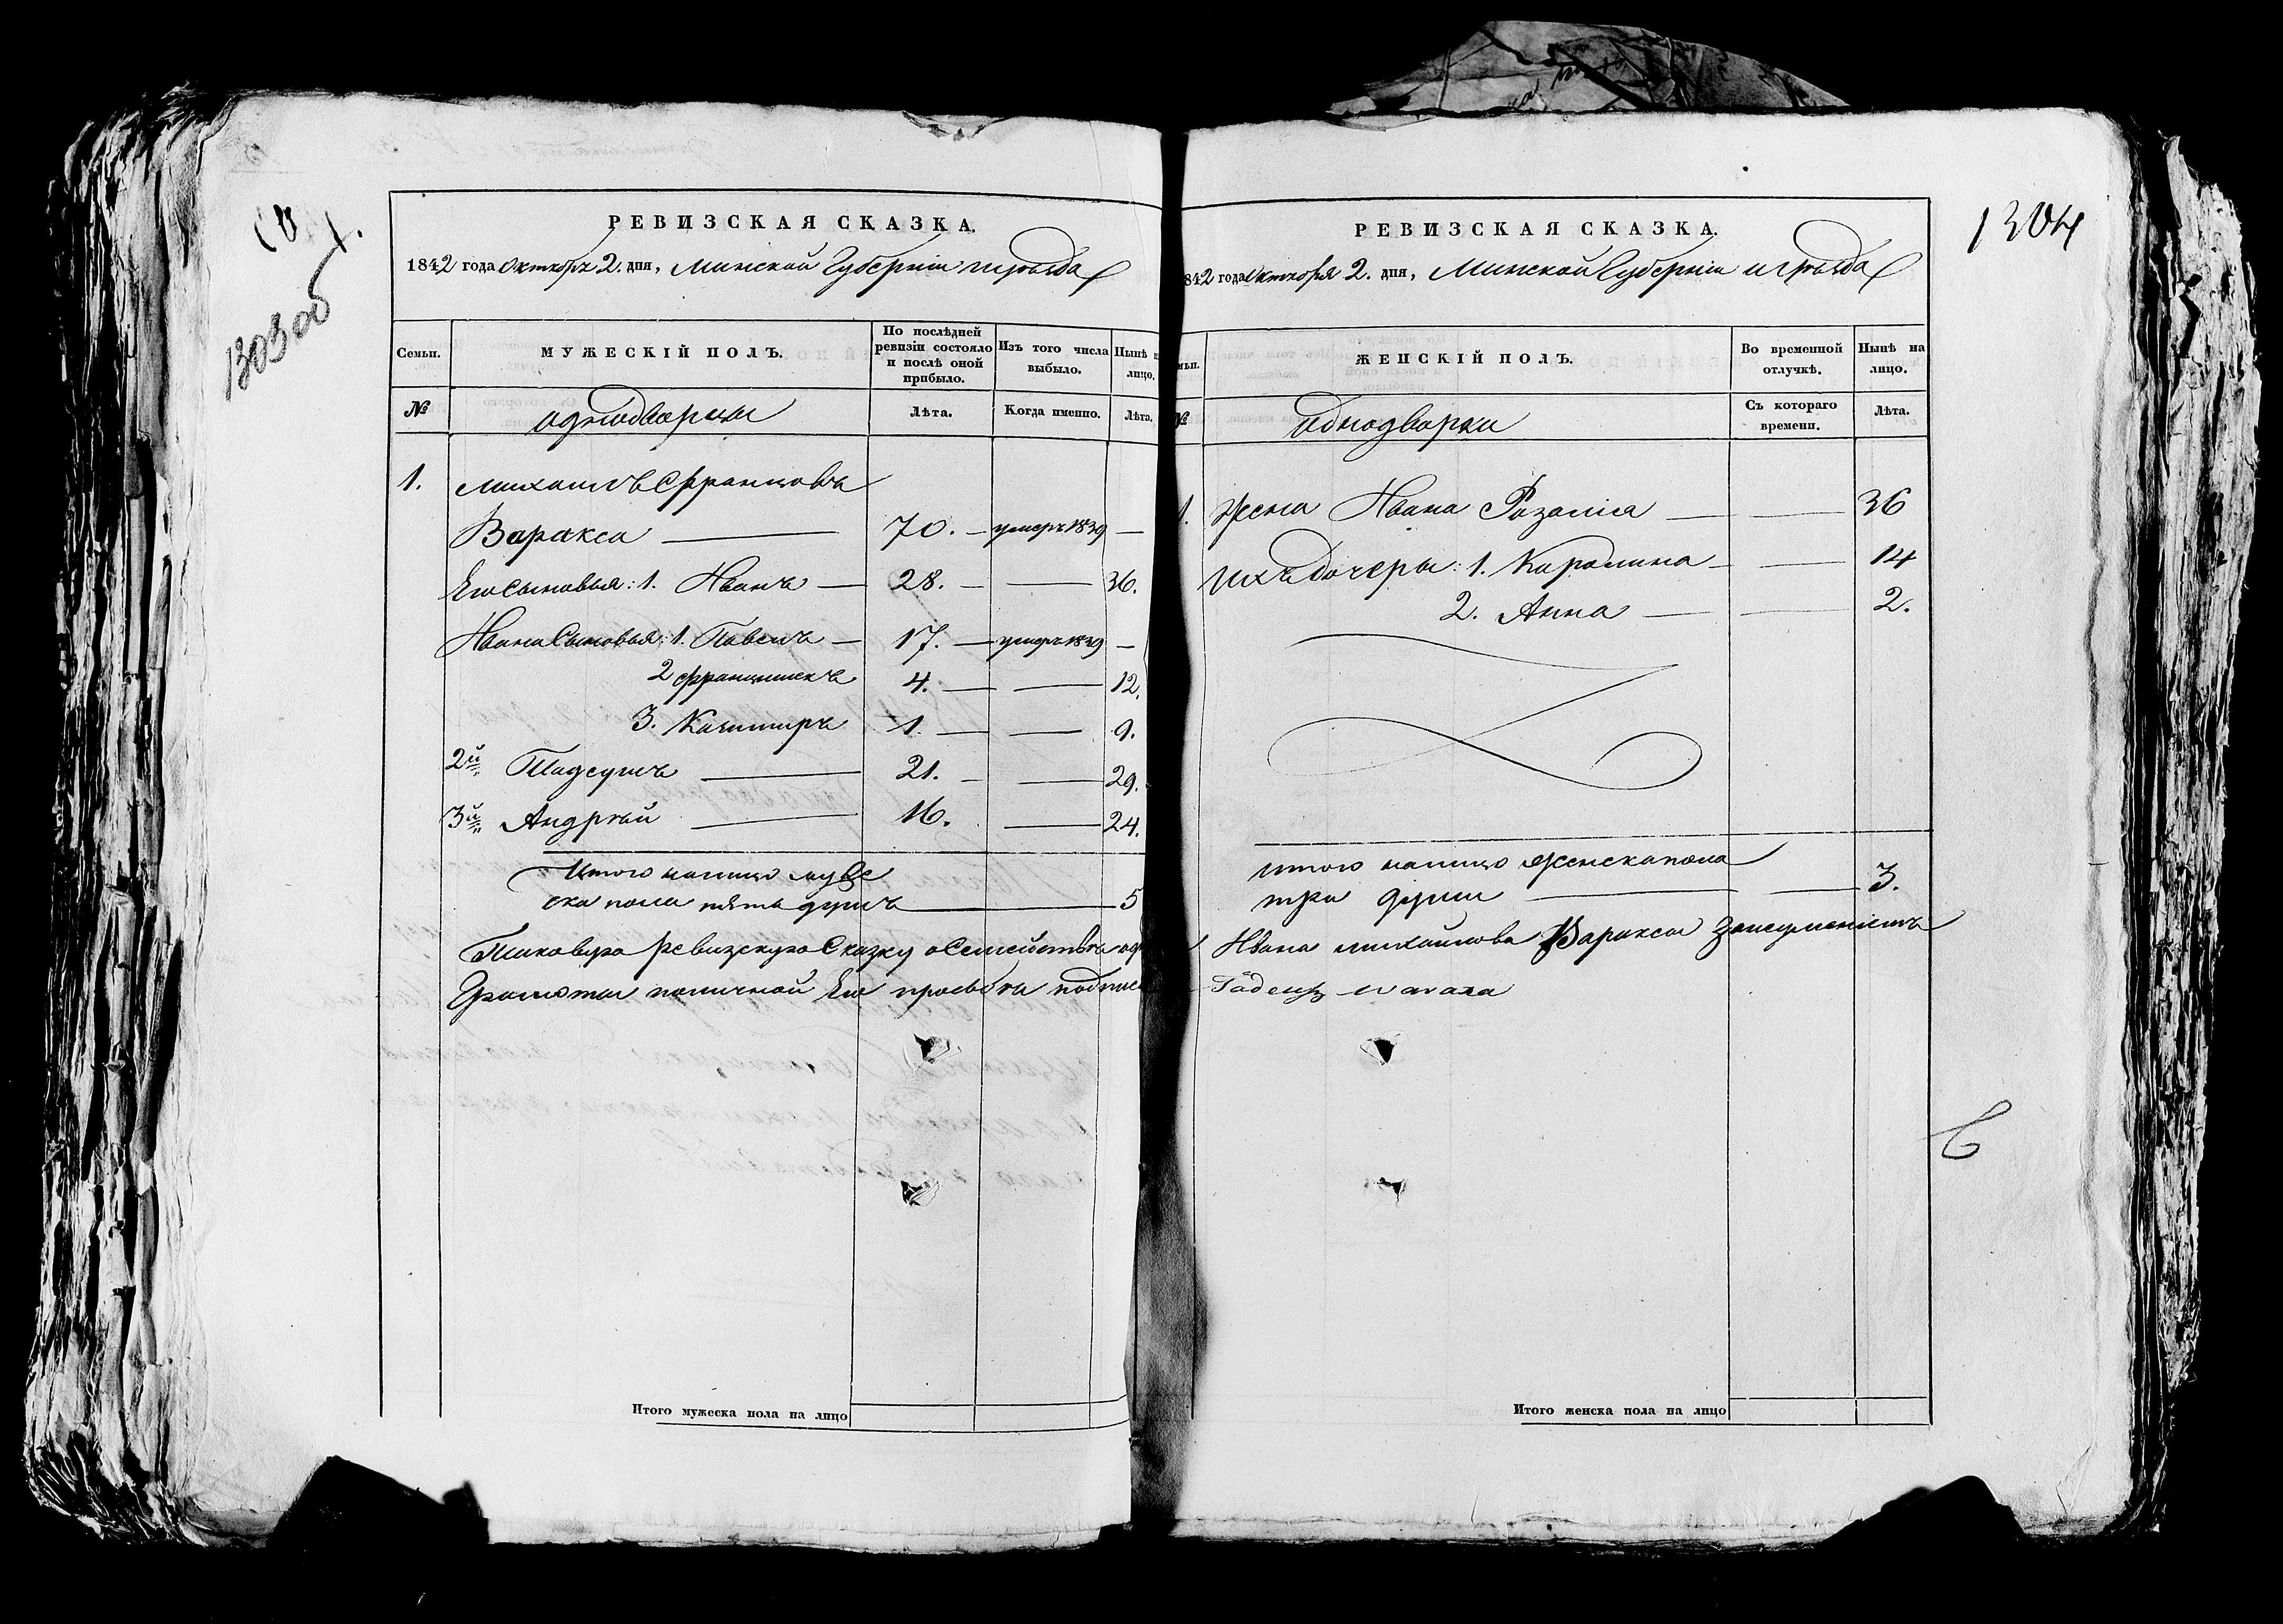 1303об
РЕВИЗСКАЯ СКАЗКА.
1842 года Октября 2. дня, Минской Губерніи и уѣзда
Семьи.
МУЖЕСКІЙ ПОЛЪ.
По послѣдней ревизіи состояло и послѣ оной прибыло.
Изъ того числа выбыло.
Нынѣ лицо.
№
однодворцы
Лѣта.
Когда именно.
Лѣта.
1. Михаилъ Францовъ
Варакса — 70. — умеръ 1839 —
Его Сыновья: 1. Иванъ — 28. — — 36.
Ивана Сыновья: 1. Павелъ — 17. — умеръ 1839 —
2 Францишекъ 4. — — 12.
3. Казимиръ 1. — — 9.
2й Тадеушъ — 21. — — 29.
3й Андрѣй — 16. — 24.
Итого налицо муже
ска пола пять душъ — 5
Таковую ревизскую Сказку о Семействѣ
Грамоты по личной Его просьбѣ подпис
Итого мужеска пола на лицо
1304
РЕВИЗСКАЯ СКАЗКА.
842 года Октября 2. дня, Минской Губерніи и уѣзда
ЖЕНСКІЙ ПОЛЪ.
Во временной отлучкѣ.
Нынѣ на лицо.
№
Однодворки
Съ котораго времени.
Лѣта.
1. Жена Ивана Розалія — — 36
Ихъ дочеры: 1. Каролина — — 14
2. Анна — — 2.
итого налицо женска пола
три души — — 3.
Ивана Михайлова Вараксы Занеумѣніемъ
Итого женска пола на лицо